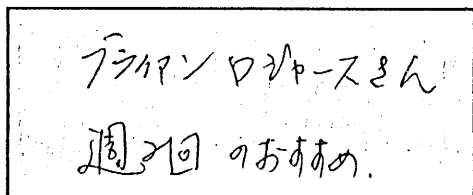 ブライアンロジャースさん
週2回のおすすめ.